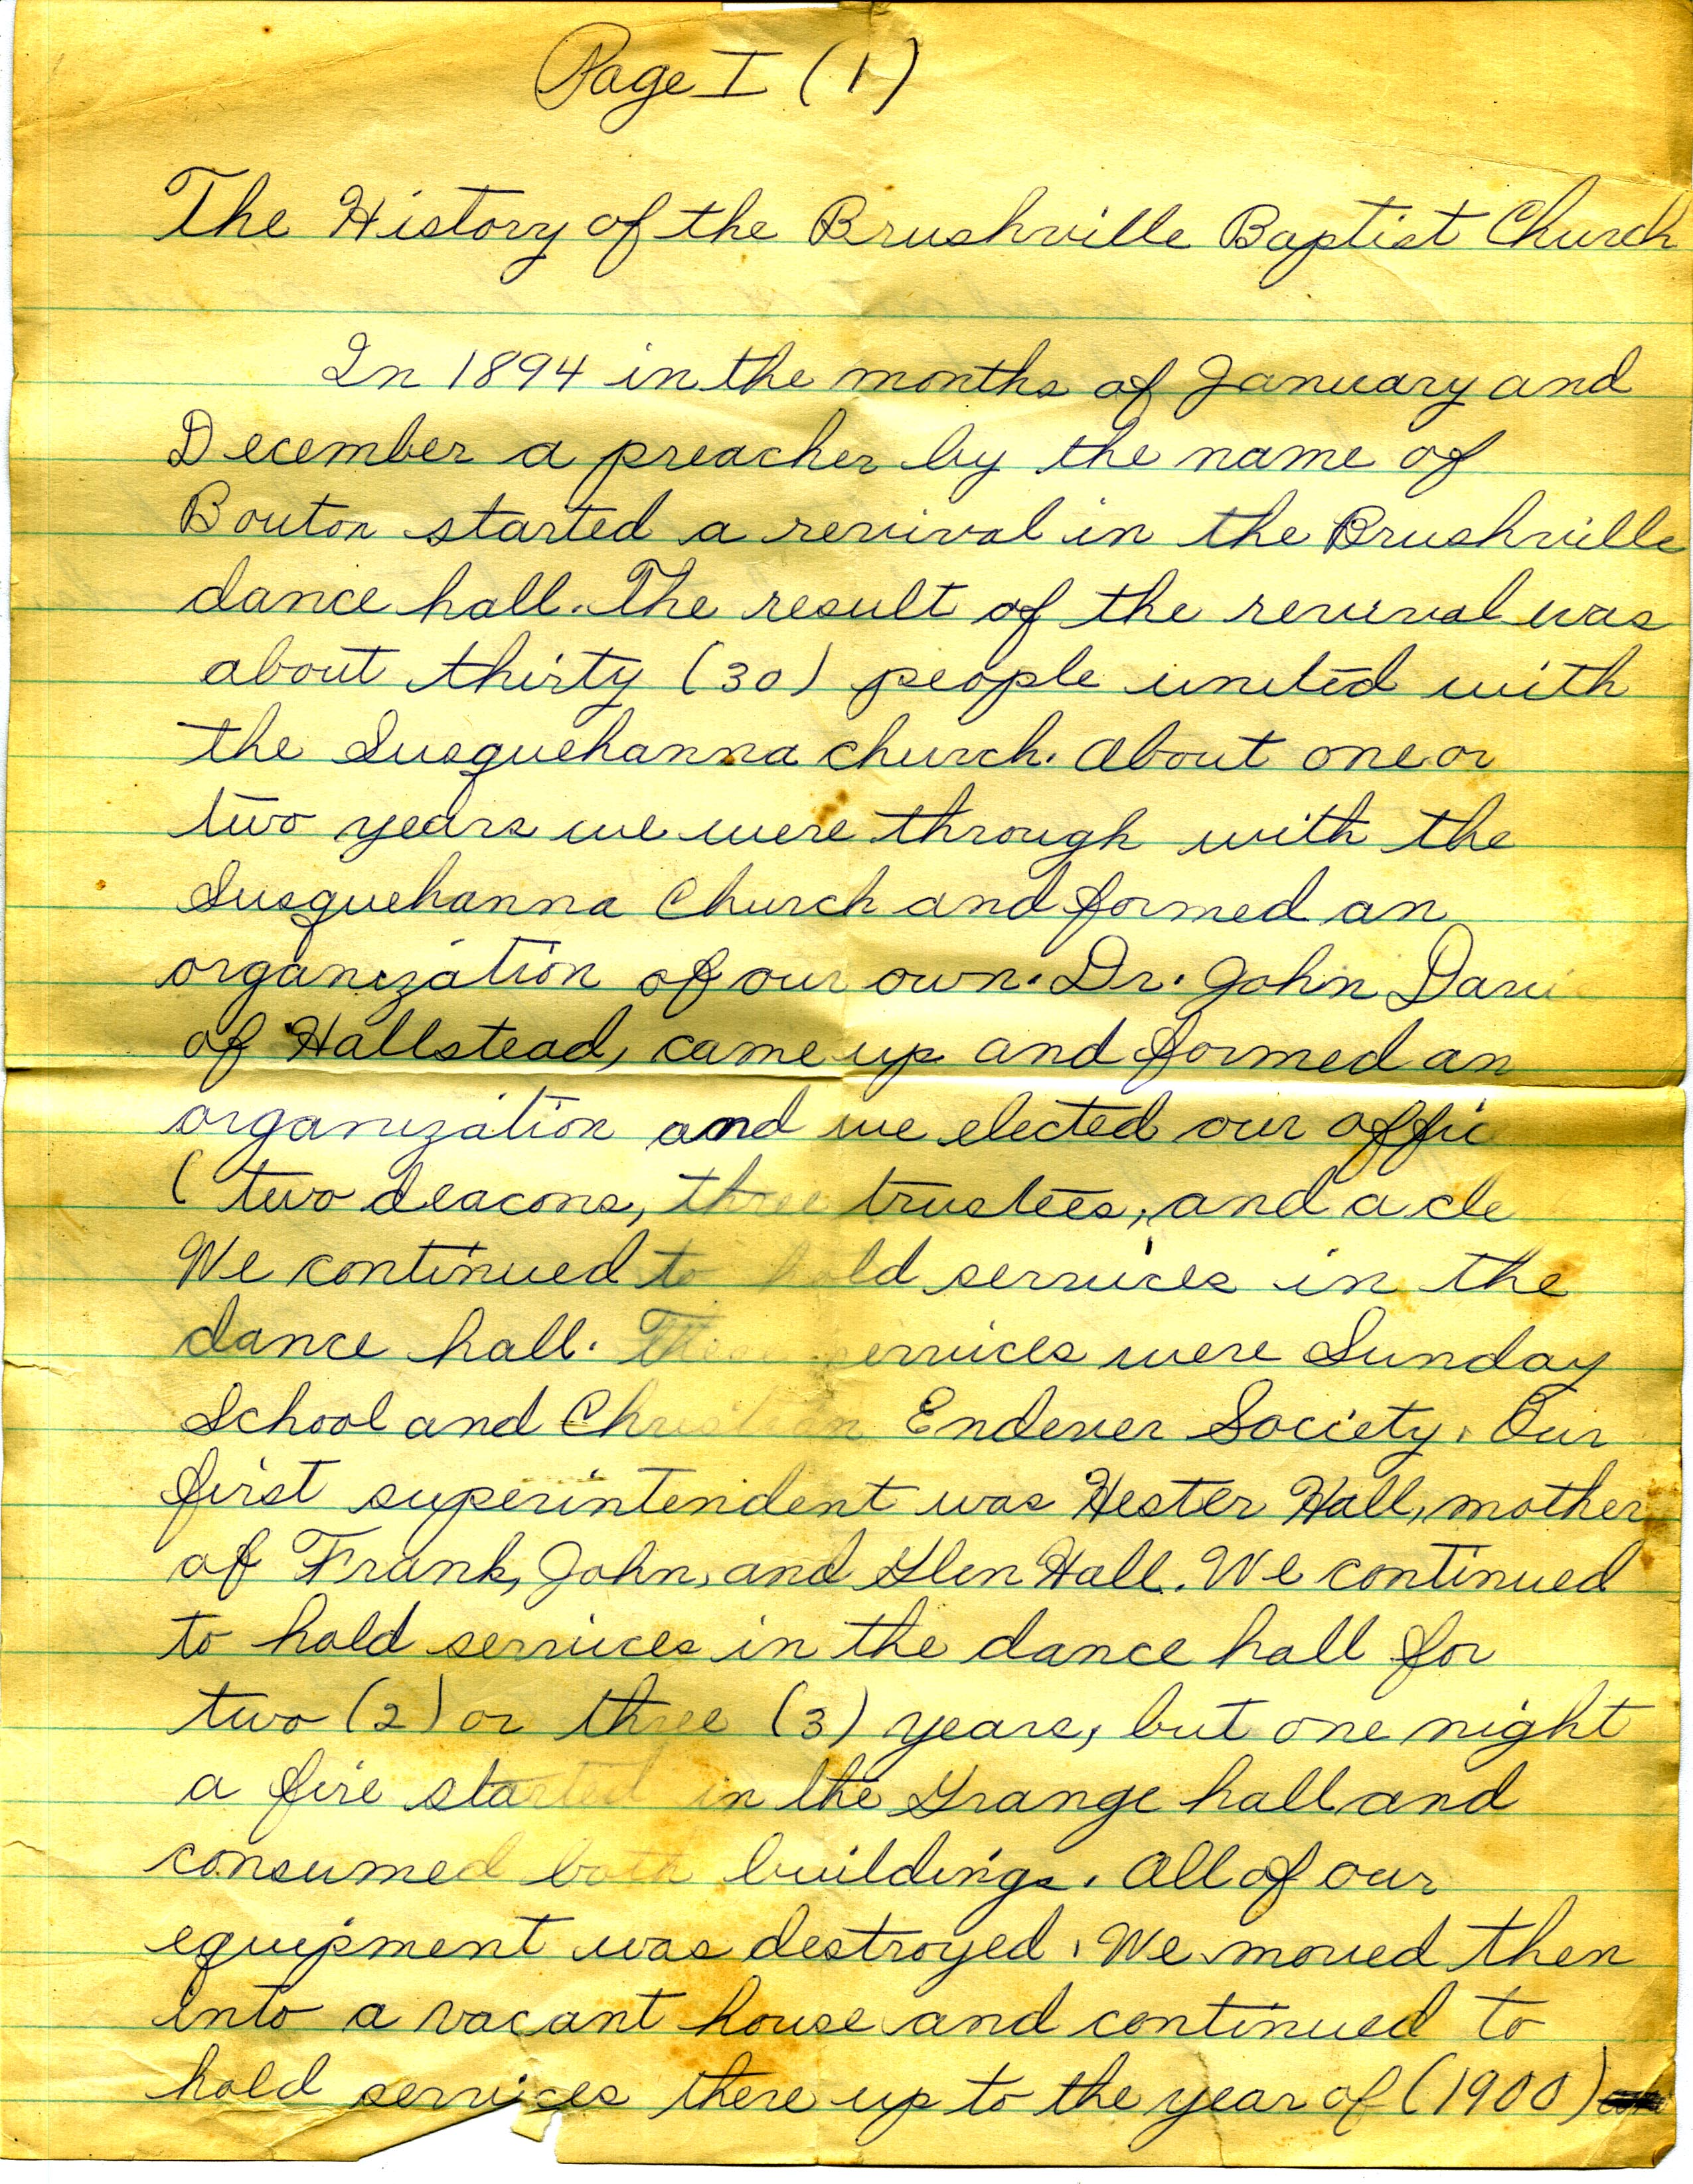 Page I (1)
The History of the Brushville Baptist Church
In 1894 in the months of January and
December a preacher by the name of
Bouton started a revival in the Brushville
dance hall. The result of the revival was
about thirty (30) people united with
the Susquehanna church. About one or
two years we were through with the
Susquehanna Church and formed an
organization of our own. Dr. John Davi
of Hallstead, came up and formed an
organization and we elected our offic
( two deacons, three trustees, and a cle
We continued to hold services in the
dance hall. These services were Sunday
School and Christian Endever Society. Our
first superintendent was Hester Hall, mother
of Frank, John, and Glen Hall. We continued
to hold services in the dance hall for
two (2) or three (3) years, but one night
a fire started in the Grange hall and
consumed both buildings. All of our
equipment was destroyed. We moved then
into a vacant house and continued to
hold services there up to the year of (1900)